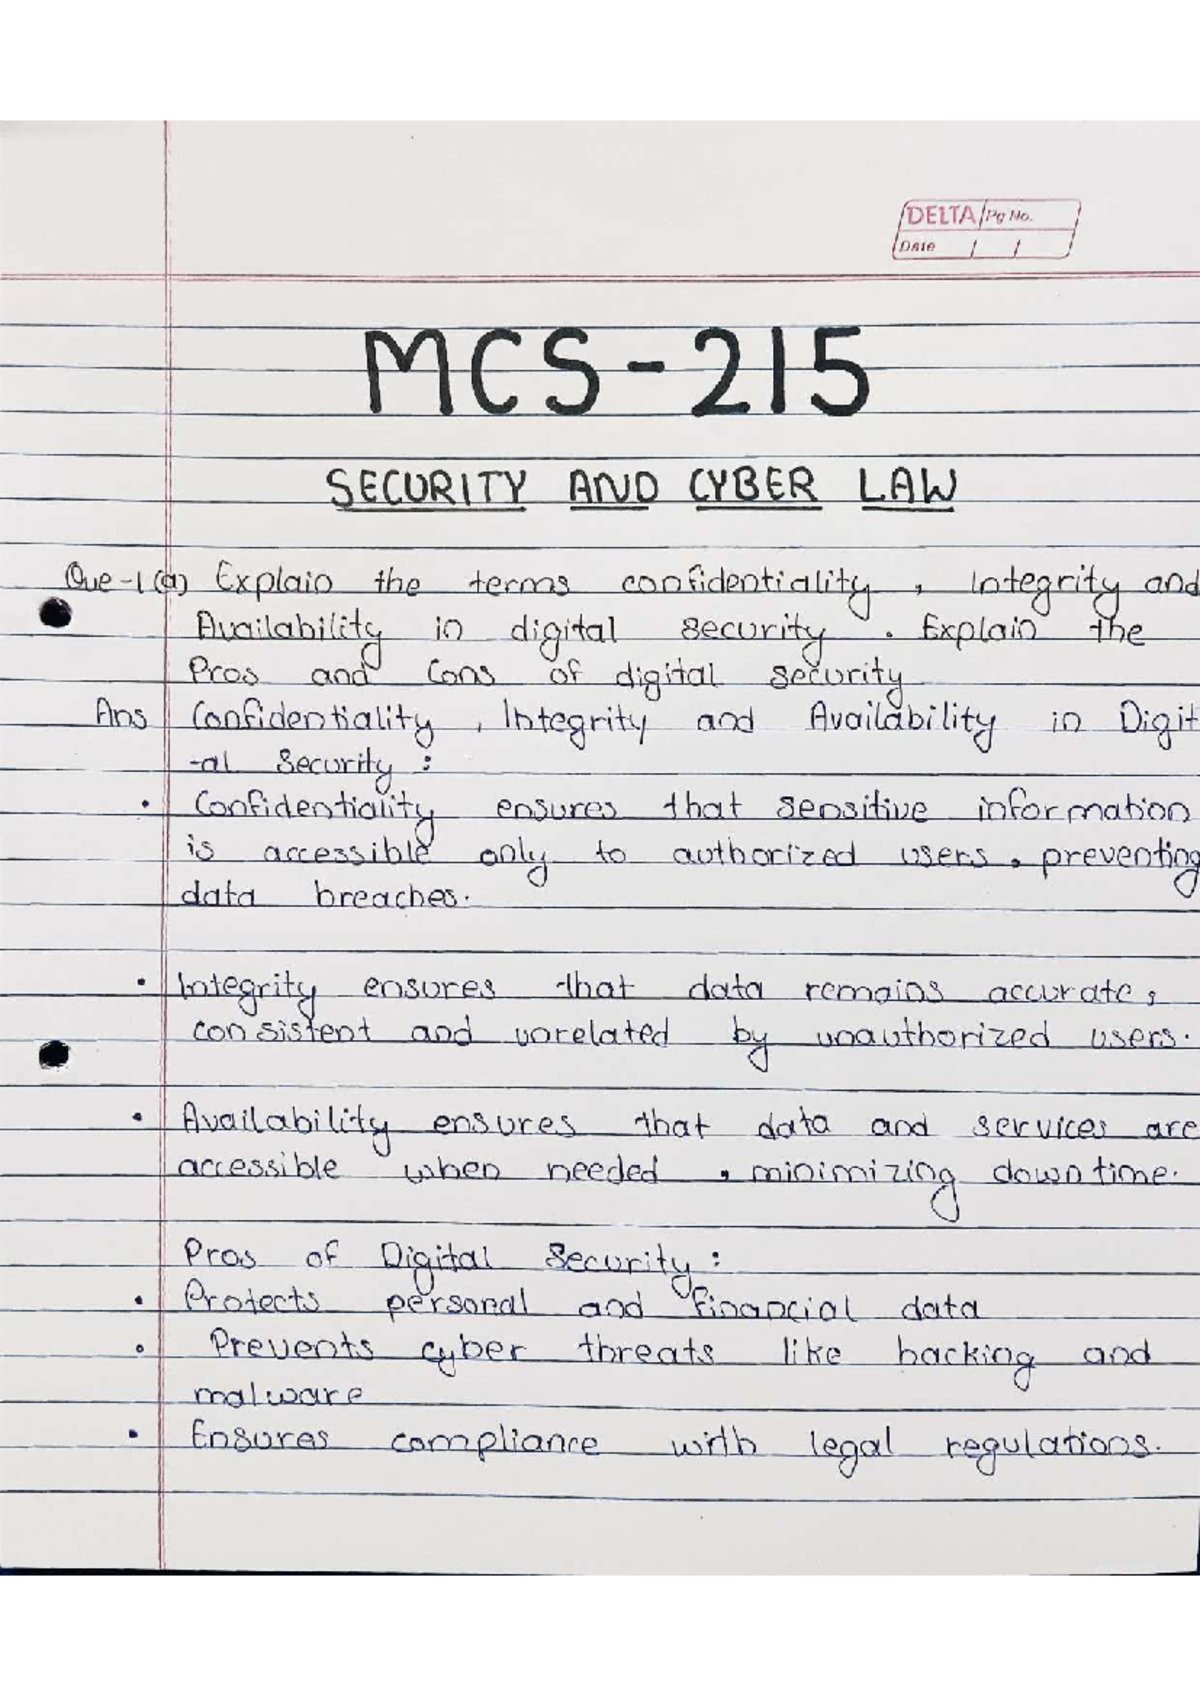 DELTA Pg No.
Date / /
MCS-215
SECURITY AND CYBER LAW
Que-1(a) Explain the terms confidentiality, Integrity and
Availability in digital security. Explain the
Pros and Cons of digital security
Ans Confidentiality, Integrity and Availability in Digit
-al Security:
• Confidentiality ensures that sensitive information
is accessible only to authorized users, preventing
data breaches.
• Integrity ensures that data remains accurate,
consistent and unrelated by unauthorized users.
• Availability ensures that data and services are
accessible when needed, minimizing downtime.
Pros of Digital Security:
• Protects personal and financial data
• Prevents cyber threats like hacking and
malware
• Ensures compliance with legal regulations.